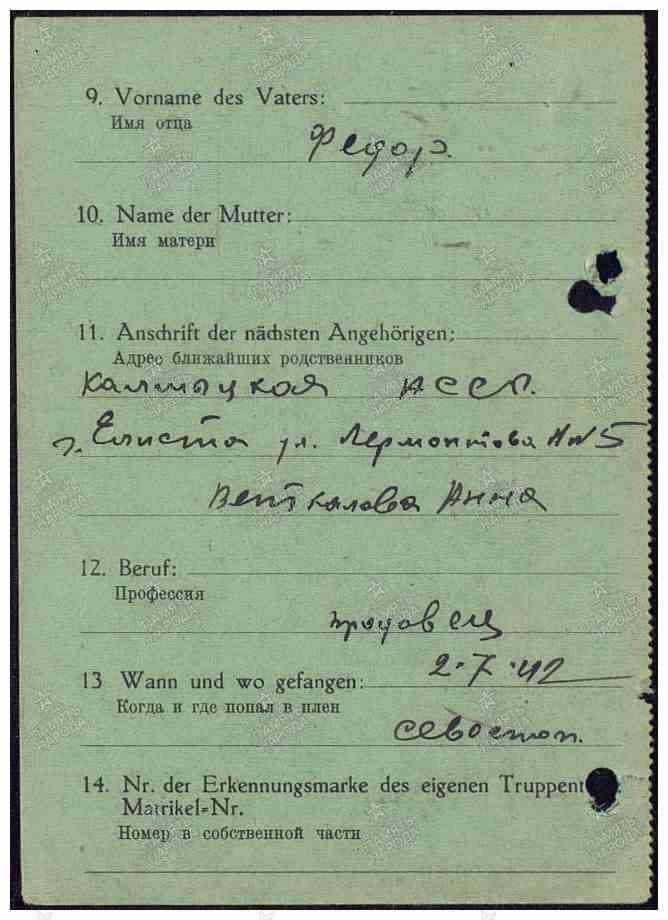 9. Vorname des Vaters:
Имя отца
Федор.
10. Name der Mutter:
Имя матери
11. Anschrift der nächsten Angehörigen:
Адрес ближайших родственников
Калмыцкая АССР.
г. Елиста ул. Лермонтова №5
Анна
12. Beruf:
Профессия
продавец
2.7.42
13 Wann und wo gefangen:
Когда и где попал в плен
Севостоп.
14. Nr. der Erkennungsmarke des eigenen
Matrikel-Nr.
Номер в собственной части